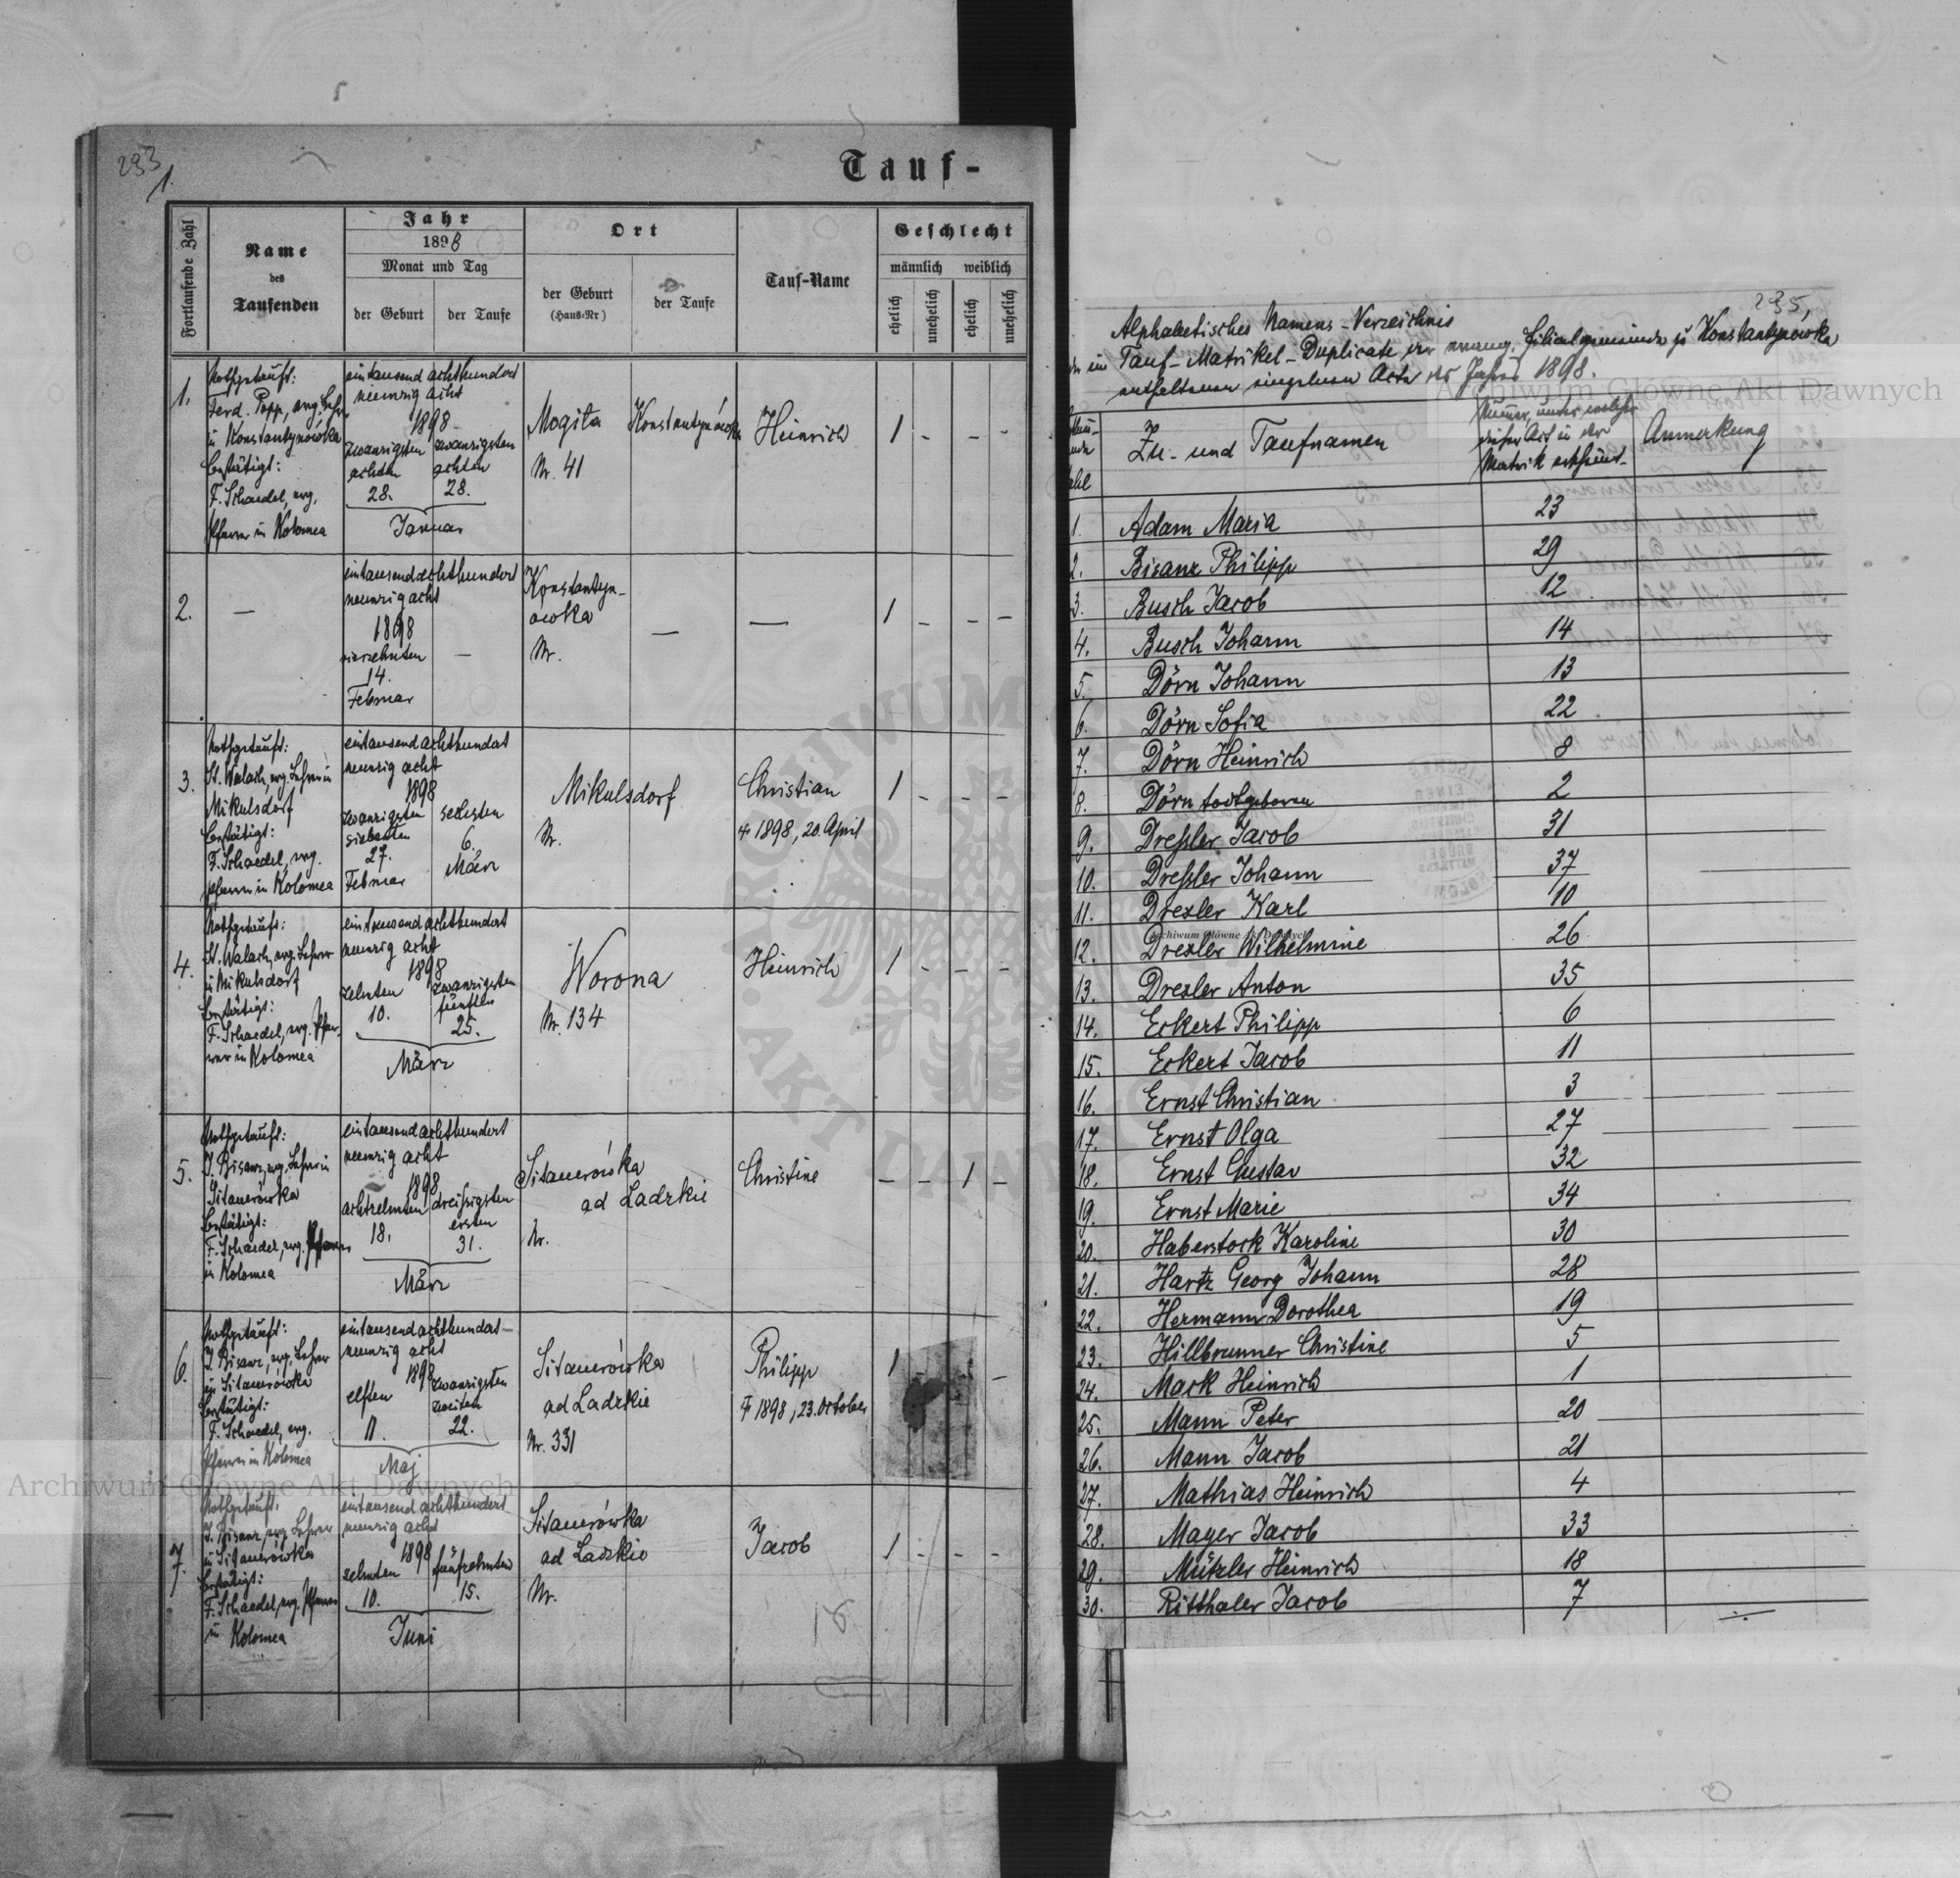 293
1.
Tauf-
Fortlaufende Zahl
Name
des
Taufenden
Jahr
1898
Monat und Tag
der Geburt
der Taufe
Ort
der Geburt
(Haus-Nr)
der Taufe
Tauf-Name
Geschlecht
männlich weiblich
ehelich
unehelich
ehelich
unehelich
1.
Nothgetauft:
Ferd. Popp, evg. Lehr.
in Konstantynówka
bestätigt:
F. Schaedel, evg.
Pfarrer in Kolomea
eintausend achthundert
neunzig acht
1898
zwanzigsten
achten
28.
zwanzigsten
achten
28.
Januar
Mogiła
Nr. 41
Konstantynówka
Heinrich
1 - - -
2.
—
eintausendachthundert
neunzig acht
1898
vierzehnten
14.
Februar
—
Konstantyn-
ówka
Nr.
—
—
1 - - -
3.
Nothgetauft:
St. Walach, evg. Lehrer in
Mikulsdorf
bestätigt:
F. Schaedel, evg.
Pfarrer in Kolomea
eintausend achthundert
neunzig acht
1898
zwanzigsten
siebenten
27.
Februar
sechsten
6.
März
Mikulsdorf
Nr.
Christian
† 1898, 20. April
1 - - -
4.
Nothgetauft:
St. Walach, evg. Lehrer
in Mikulsdorf
bestätigt:
F. Schaedel, evg. Pfar-
rer in Kolomea
eintausend achthundert
neunzig acht
1898
zehnten
10.
zwanzigsten
fünften
25.
März
Worona
Nr. 134
Heinrich
1 - - -
5.
Nothgetauft:
J. Bisanz, evg. Lehrer in
Sitauerówka
bestätigt:
F. Schaedel, evg. Pfarrer
in Kolomea
eintausendachthundert
neunzig acht
1898
achtzehnten
18.
dreißigsten
ersten
31.
März
Sitauerówka
ad Ladzkie
Nr.
Christine
- - 1 -
6.
Nothgetauft:
J. Bisanz, evg. Lehrer
in Sitauerówka
bestätigt:
F. Schaedel, evg.
Pfarrer in Kolomea
eintausendachthundert-
neunzig acht
1898
elften
11.
zwanzigsten
zweiten
22.
Maj
Sitauerówka
ad Ladzkie
Nr. 331
Philipp
† 1898, 23. October
1 -
7.
Nothgetauft:
J. Bisanz, evg. Lehrer
in Sitauerówka
bestätigt:
F. Schaedel, evg. Pfarrer
in Kolomea
eintausend achthundert
neunzig acht
1898
zehnten
10.
fünfzehnten
15.
Juni
Sitauerówka
ad Ladzkie
Nr.
Jacob
1 - - -
18
295,
Alphabetisches Namens-Verzeichnis
der im Tauf-Matrikel-Duplicate der evang. Filialgemeinde zu Konstantynówka
enthaltenen einzelnen Acte des Jahres 1898.
Zu- und Taufnamen
Numer, unter welcher
dieser Act in der
Matrik erscheint.
Anmerkung
1. Adam Maria 23
2. Bisanz Philipp 29
3. Busch Jacob 12
4. Busch Johann 14
5. Dörn Johann 13
6. Dörn Sofia 22
7. Dörn Heinrich 8
8. Dörn todtgeboren 2
9. Dreßler Jacob 31
10. Dreßler Johann 37
11. Drexler Karl 10
12. Drexler Wilhelmine 26
13. Drexler Anton 35
14. Eckert Philipp 6
15. Eckert Jacob 11
16. Ernst Christian 3
17. Ernst Olga 27
18. Ernst Gustav 32
19. Ernst Marie 34
20. Haberstock Karoline 30
21. Hartz Georg Johann 28
22. Hermann Dorothea 19
23. Hillbrunner Christine 5
24. Mack Heinrich 1
25. Mann Peter 20
26. Mann Jacob 21
27. Mathias Heinrich 4
28. Mayer Jacob 33
29. Mützler Heinrich 18
30. Ritthaler Jacob 7
Archiwum Główne Akt Dawnych
Archiwum Główne Akt Dawnych
Archiwum Główne Akt Dawnych